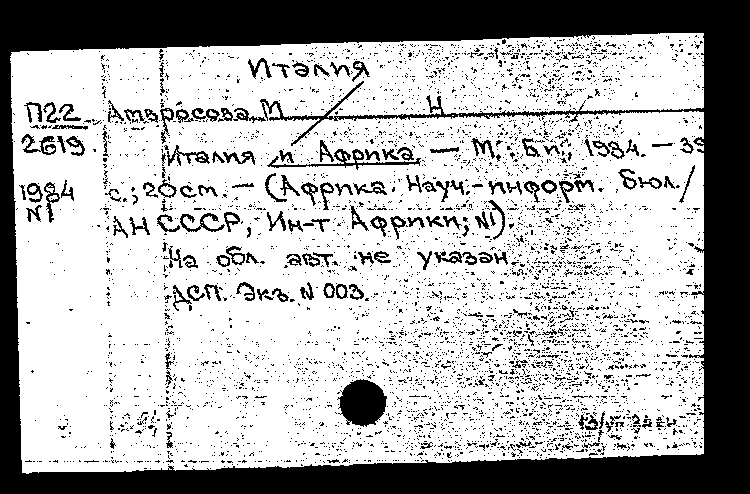 Италия
П22 Амвросова М Н
2619 Италия и Африка — М.: Б.и., 1984. — 39
1984 с.; 20 см. — (Африка. Науч.-информ. бюл./
N1 АН СССР, Ин-т Африки; N1).
На обл. авт. не указан
ДСП. Экз. N 003.